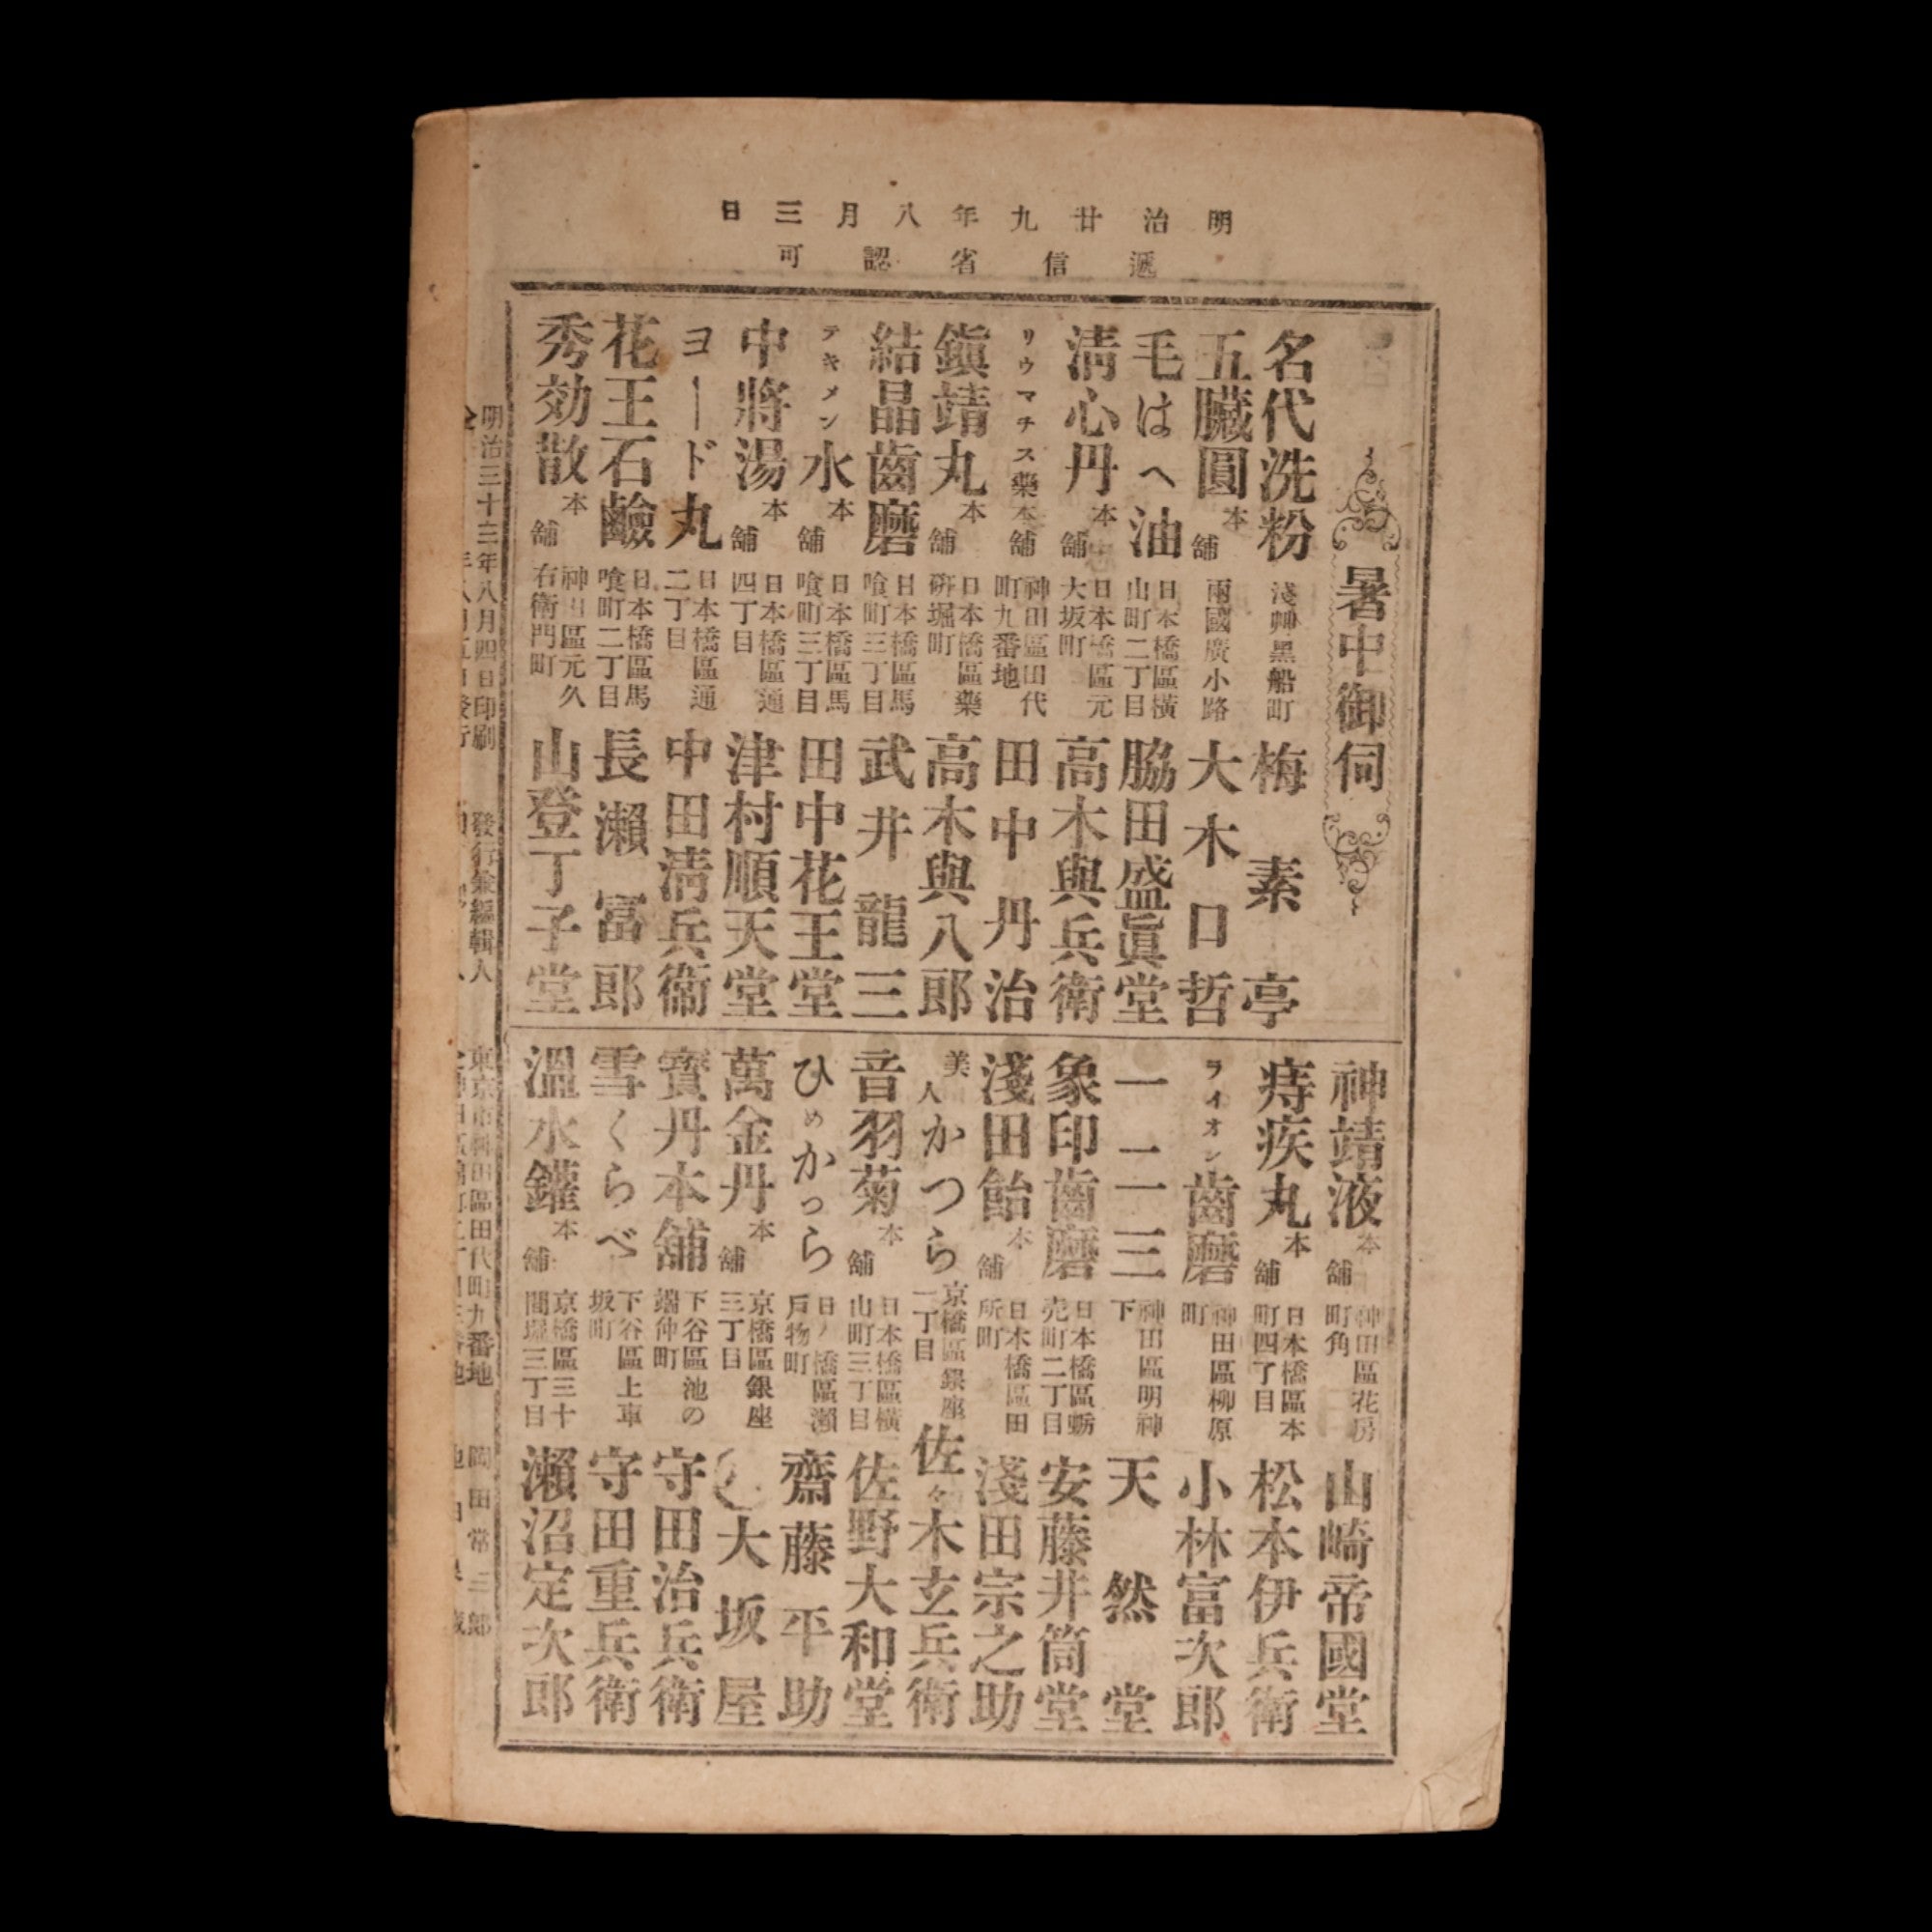 明治廿九年八月三日
遞信省認可
暑中御伺
名代洗粉 淺艸黑船町 梅素亭
五臟圓本舖 兩國廣小路 大木口哲
毛はへ油 日本橋區橫山町二丁目 脇田盛眞堂
淸心丹本舖 日本橋區元大坂町 高木與兵衛
リウマチス藥本舖 神田區田代町九番地 田中丹治
鎭靖丸本舖 日本橋區藥硏堀町 高木與八郎
結晶齒磨 日本橋區馬喰町三丁目 武井龍三
テキメン水本舖 日本橋區馬喰町三丁目 田中花王堂
中將湯本舖 日本橋區通四丁目 津村順天堂
ヨード丸 日本橋區通二丁目 中田淸兵衞
花王石鹼 日本橋區馬喰町二丁目 長瀨富郎
秀効散本舖 神田區元久右衛門町 山登丁子堂
神靖液本舖 神田區花房町角 山崎帝國堂
痔疾丸本舖 日本橋區本町四丁目 松本伊兵衛
ライオン齒磨 神田區柳原町 小林富次郎
一二三 神田區明神下 天然堂
象印齒磨 日本橋區蠣売町二丁目 安藤井筒堂
淺田飴本舖 日本橋區田所町 淺田宗之助
美人かつら 京橋區銀座二丁目 佐々木玄兵衛
音羽菊本舖 日本橋區橫山町三丁目 佐野大和堂
ひめかつら 橋區瀨戶物町 齋藤平助
萬金丹本舖 京橋區銀座三丁目 大坂屋
寳丹本舖 下谷區池の端仲町 守田治兵衛
雪くらべ 下谷區上車坂町 守田重兵衛
溫水鑵本舖 京橋區三十間堀三丁目 瀨沼定次郎
明治三十三年八月四日印刷 發行兼編輯人 東京市神田區田代町九番地 岡田常三郎